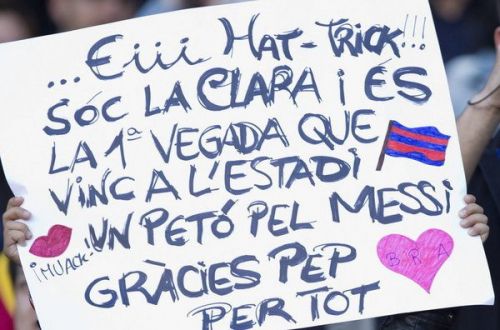 ...Eiii HAT-TRICK!!!
SÓC LA CLARA i ÉS
LA 1ª VEGADA QUE
VINC A L'ESTADI
UN PETÓ PEL MESSI
¡MUACK!
GRÀCIES PEP
PER TOT
BRA